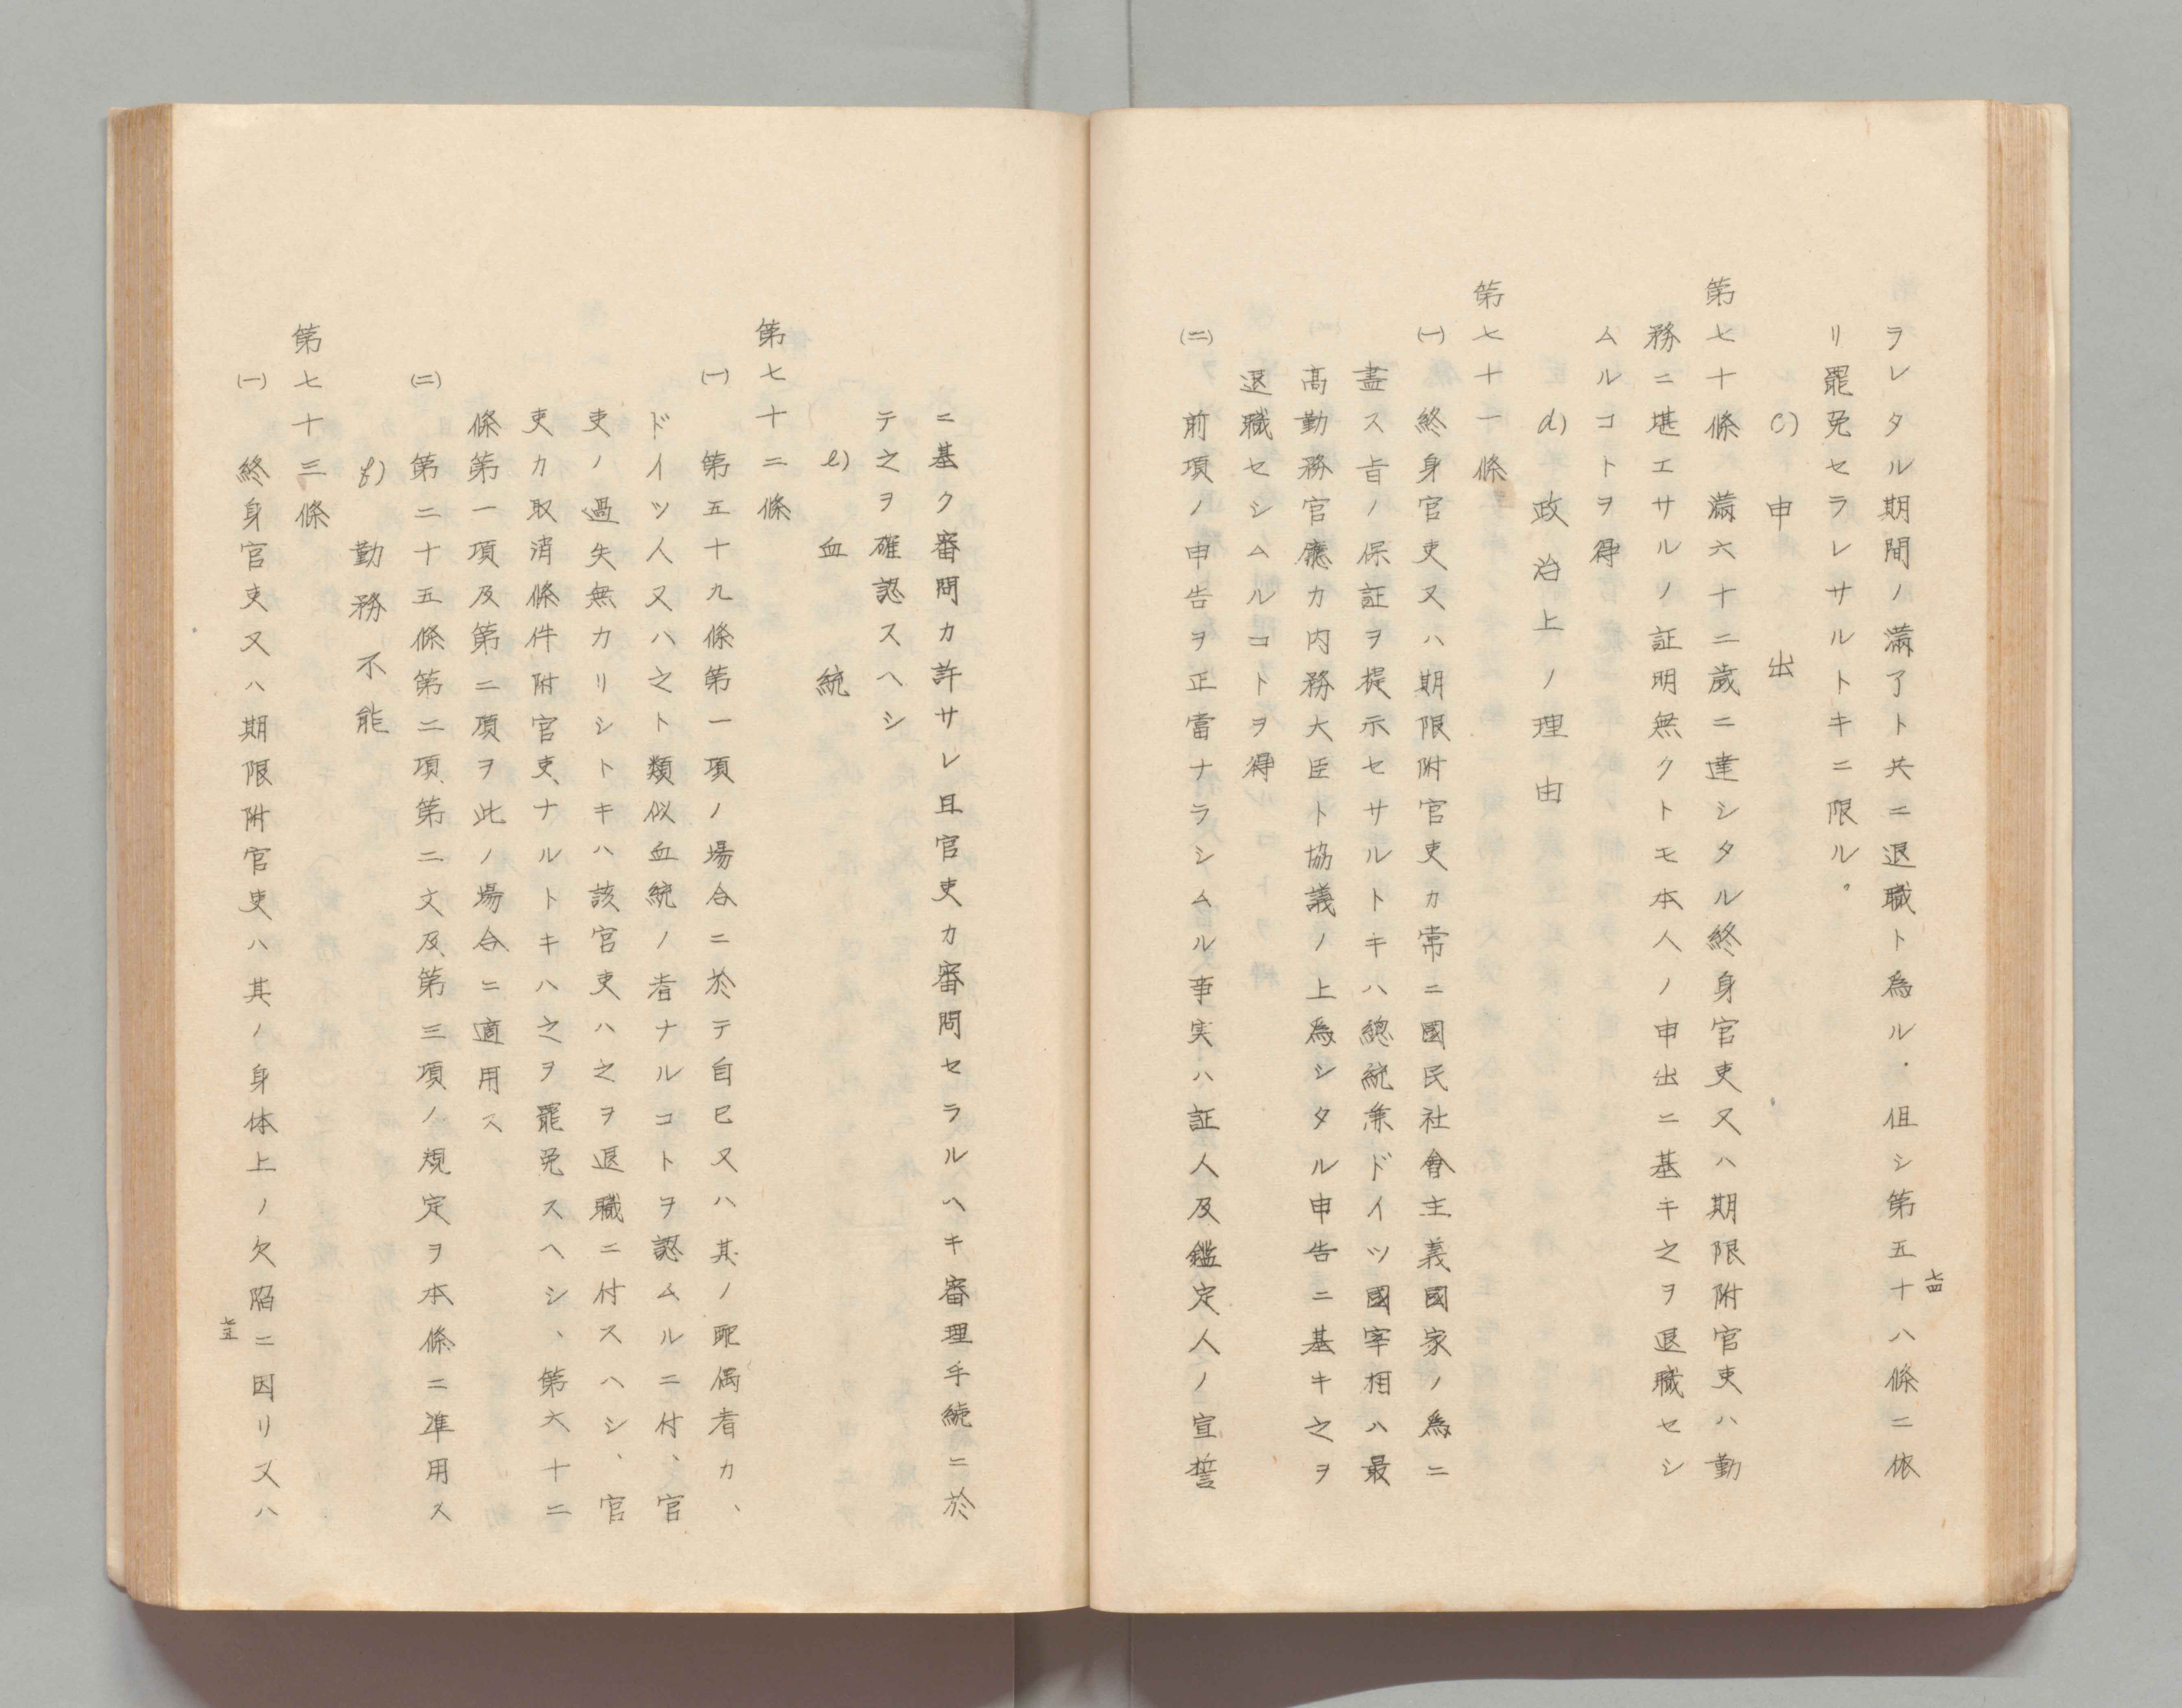 ヲレタル期間ノ満了ト共ニ退職ト爲ル．但シ第五十八條ニ依
リ罷免セラレサルトキニ限ル。
c) 申出
第七十條 滿六十二歳ニ達シタル終身官吏又ハ期限附官吏ハ勤
務ニ堪エサルノ証明無クトモ本人ノ申出ニ基キ之ヲ退職セシ
ムルコトヲ得
d) 政治上ノ理由
第七十一條
㈠ 終身官吏又ハ期限附官吏カ常ニ國民社會主義國家ノ爲ニ
盡ス旨ノ保証ヲ提示セサルトキハ總統兼ドイツ國宰相ハ最
高勤務官廳カ内務大臣ト協議ノ上爲シタル申告ニ基キ之ヲ
退職セシムルコトヲ得
㈡ 前項ノ申告ヲ正當ナラシムル事実ハ証人及鑑定人ノ宣誓
七四
ニ基ク審問カ許サレ且官吏カ審問セラルヘキ審理手続ニ於
テ之ヲ確認スヘシ
e) 血統
第七十二條
㈠ 第五十九條第一項ノ場合ニ於テ自己又ハ其ノ配偶者カ、
ドイツ人又ハ之ト類似血統ノ者ナルコトヲ認ムルニ付、官
吏ノ過失無カリシトキハ該官吏ハ之ヲ退職ニ付スヘシ、官
吏カ取消條件附官吏ナルトキハ之ヲ罷免スヘシ、第六十二
條第一項及第二項ヲ此ノ場合ニ適用ス
㈡ 第二十五條第二項第二文及第三項ノ規定ヲ本條ニ準用ス
f) 勤務不能
第七十三條
㈠ 終身官吏又ハ期限附官吏ハ其ノ身体上ノ欠陥ニ因リ又ハ
七五